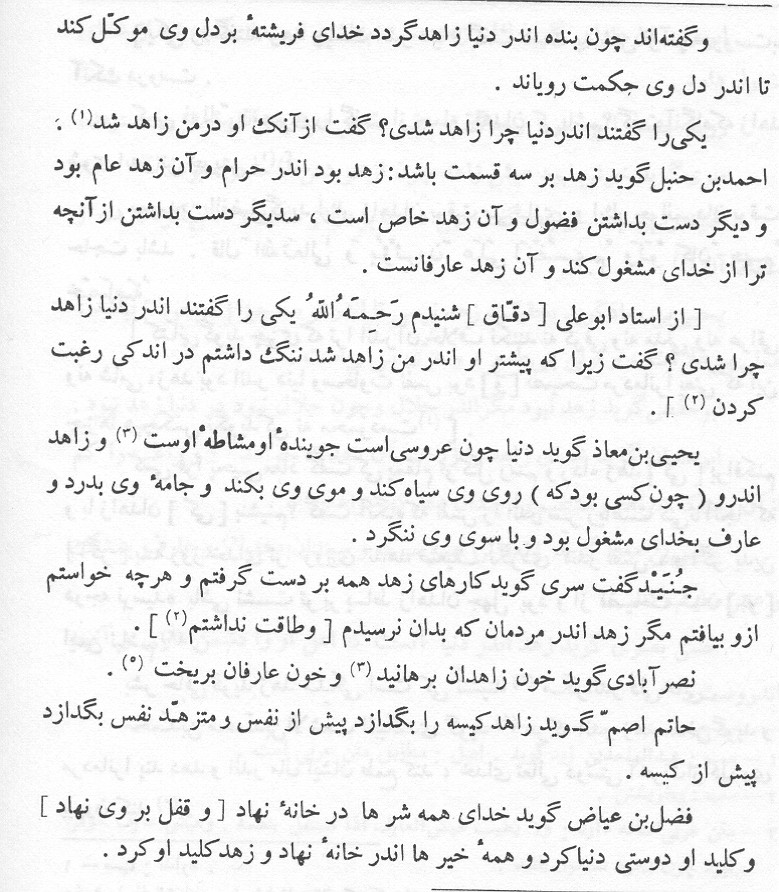 وگفته‌اند چون بنده اندر دنیا زاهدگردد خدای فریشتهٔ بردل وی موکّل کند
تا اندر دل وی جکمت رویاند .
یکی‌را گفتند اندردنیا چرا زاهد شدی؟ گفت ازآنک او درمن زاهد شد(۱) .
احمدبن حنبل گوید زهد بر سه قسمت باشد: زهد بود اندر حرام و آن زهد عام بود
و دیگر دست بداشتن فضول و آن زهد خاص است ، سدیگر دست بداشتن ازآنچه
ترا از خدای مشغول کند و آن زهد عارفانست .
[ از استاد ابوعلی [ دقّاق ] شنیدم رَحِمَه‌ُ اللّه‌ُ یکی را گفتند اندر دنیا زاهد
چرا شدی ؟ گفت زیرا که پیشتر او اندر من زاهد شد ننگ داشتم در اندکی رغبت
کردن (۲) ] .
یحیی‌بن‌معاذ گوید دنیا چون عروسی‌است جویندهٔ اومشاطهٔ اوست (۳) و زاهد
اندرو ( چون‌کسی بودکه ) روی وی سیاه کند و موی وی بکند و جامهٔ وی بدرد و
عارف بخدای مشغول بود و با سوی وی ننگرد .
جُنَیْد گفت سری گوید کارهای زهد همه بر دست گرفتم و هرچه خواستم
ازو بیافتم مگر زهد اندر مردمان که بدان نرسیدم [ وطاقت نداشتم(۲) ] .
نصرآبادی گوید خون زاهدان برهانید(۳) و خون عارفان بریخت (۵) .
حاتم اصمّ گوید زاهد کیسه را بگدازد پیش از نفس و متزهّد نفس بگدازد
پیش از کیسه .
فضل‌بن عیاض گوید خدای همه شر ها در خانهٔ نهاد [ و قفل بر وی نهاد ]
وکلید او دوستی دنیاکرد و همهٔ خیر ها اندر خانهٔ نهاد و زهدکلید اوکرد.